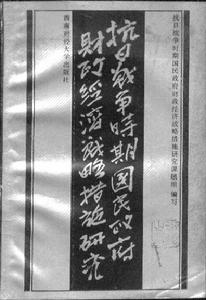 抗日战争时期国民政府财政经济战略措施研究课题组 编写
抗日战争時期国民政府
財政經濟战略措施研究
西南财经大学出版社